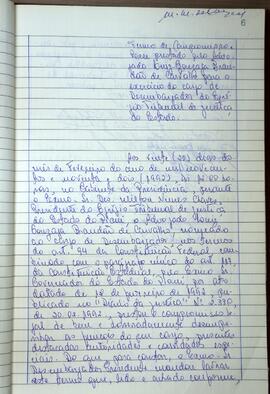 6
Termo de Compromisso
legal prestado pelo advo-
gado Luiz Gonzaga Bran-
dão de Carvalho para o
exercício do cargo de
Desembargador do Egré-
gio Tribunal de Justiça
do Estado.
Aos vinte (20) dias do
mês de fevereiro do ano de mil nove cen-
tos e noventa e dois (1992), às 12:00 ho-
ras, no Gabinete da Presidência, perante
o Exmo. Sr. Des.
Presidente do Egrégio Tribunal de Justiça
do Estado do Piauí o advogado Luiz
Gonzaga Brandão de Carvalho, nomeado
ao cargo de Desembargador nos termos
do art. 94 da Constituição Federal, com
binado, com o parágrafo único do art.
da Constituição Estadual, pelo Exmo. Sr.
Governador do Estado do Piauí, por ato
datado de de de 1992, pu-
blicado no "Diário da Justiça" nº
de 20.02.1992, prestou o compromisso le-
gal de bem e honradamente desempe-
nhar as funções do em cargo, presentes
destacadas autoridades e convidados espe-
ciais. Do que, para constar, o Exmo. Sr.
Desembargador Presidente mandou lavrar
este termo que, lido e achado conforme,